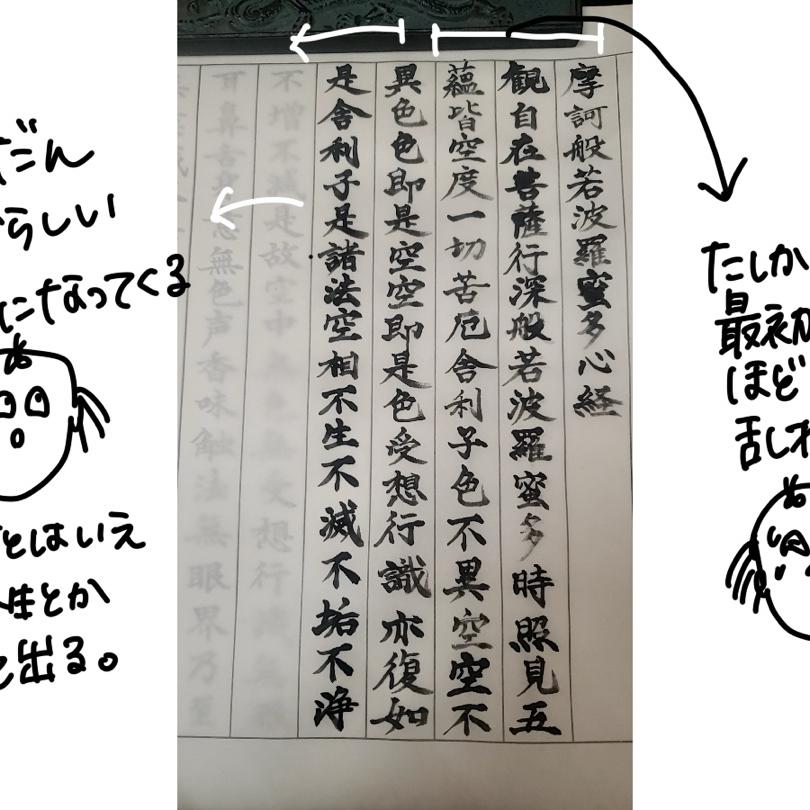 摩訶般若波羅蜜多心経
観自在菩薩行深般若波羅蜜多時照見五
蘊皆空度一切苦厄舎利子色不異空空不
異色色即是空空即是色受想行識亦復如
是舎利子是諸法空相不生不滅不垢不浄
不増不減是故空中
耳鼻舌身意無色声香味触法無眼界乃至
たしか
最初
ほど
乱れ
だん
らしい
になってくる
とはいえ
性とか
出る。